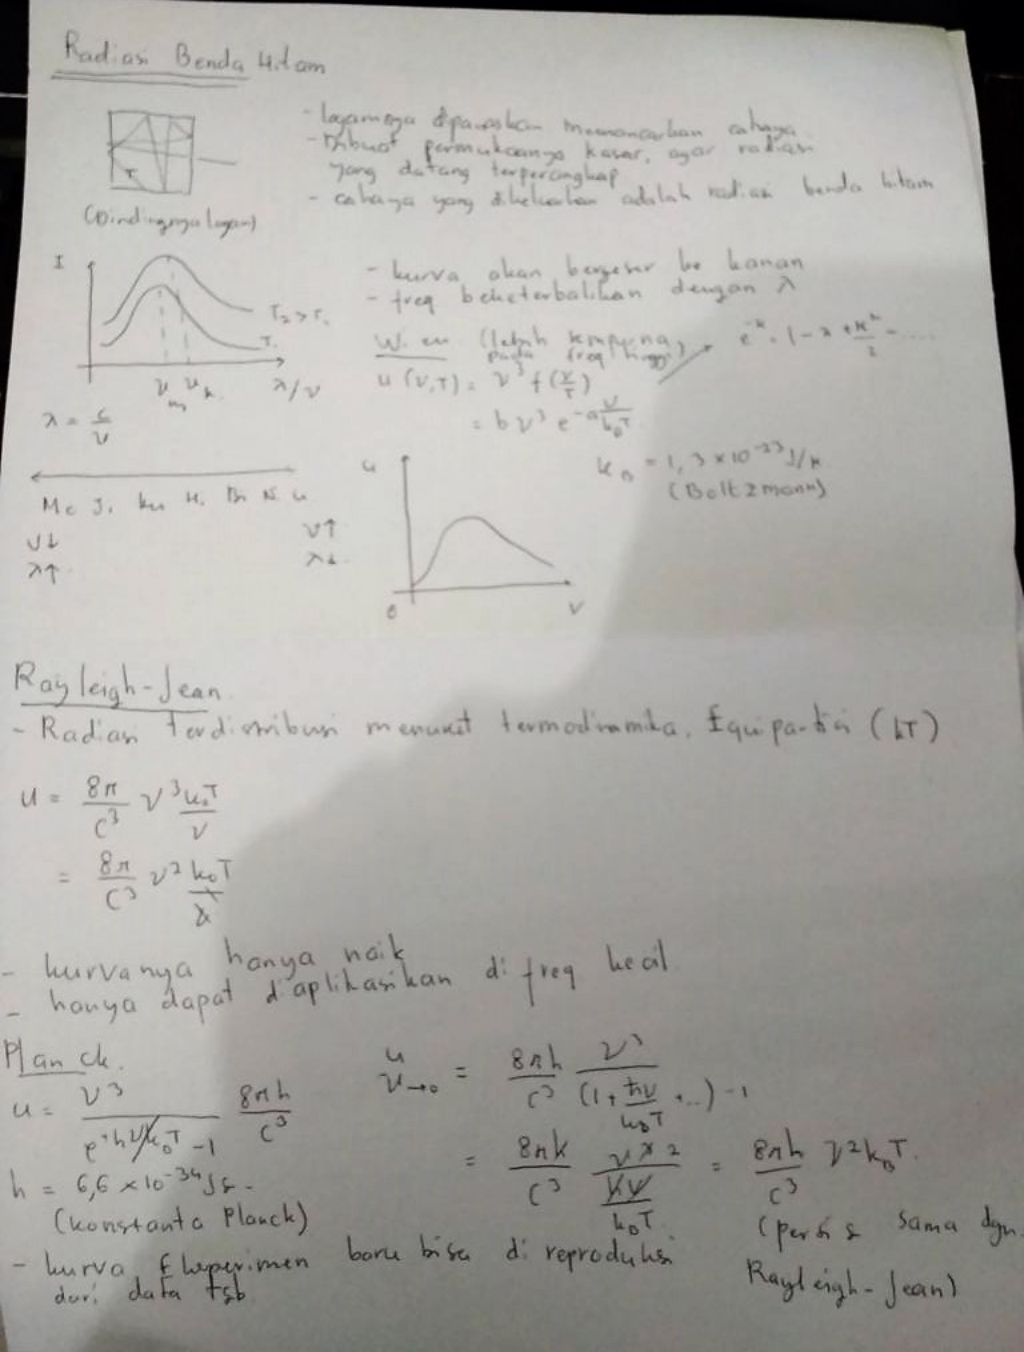 Radiasi Benda Hitam
- logamnya dipanaskan memancarkan cahaya
- Dibuat permukaanya kasar, agar radiasi
yang datang terperangkap
- cahaya yang dikeluarkan adalah radiasi benda hitam
T
(Dindingnya logam)
I
T₂ > T₁
T₁
λ/ν
λ = c/ν
- kurva akan bergeser ke kanan
- freq berketerbalikan dengan λ
Wien (lebih
pada freq tinggi)
e^-x = 1 - x + x²/2 - ....
u (ν,T) = ν³ f(ν/T)
= b ν³ e^-aν/k_BT
k_B = 1,3 × 10^-23 J/K
(Boltzmann)
Me Ji Ku H. Bi N. u
ν↓
λ↑
ν↑
λ↓
u
0
ν
Rayleigh-Jean
- Radiasi terdistribusi menurut termodinamika. Equipartisi (kT)
u = 8π/c³ ν³ k_BT/ν
= 8π/c³ ν² k_BT
- kurvanya hanya naik
- hanya dapat diaplikasikan di freq kecil
Planck.
u = ν³/(e^hν/k_BT - 1) 8πh/c³
u ν→0 = 8πh/c³ ν³/((1 + hν/k_BT + ...) - 1)
= 8πh/c³ ν³/(hν/k_BT) = 8πh/c³ ν² k_BT.
h = 6,6 × 10^-34 Js.
(konstanta Planck)
(persis sama dgn.
Rayleigh-Jean)
- kurva Eksperimen baru bisa di reproduksi
dari data tsb